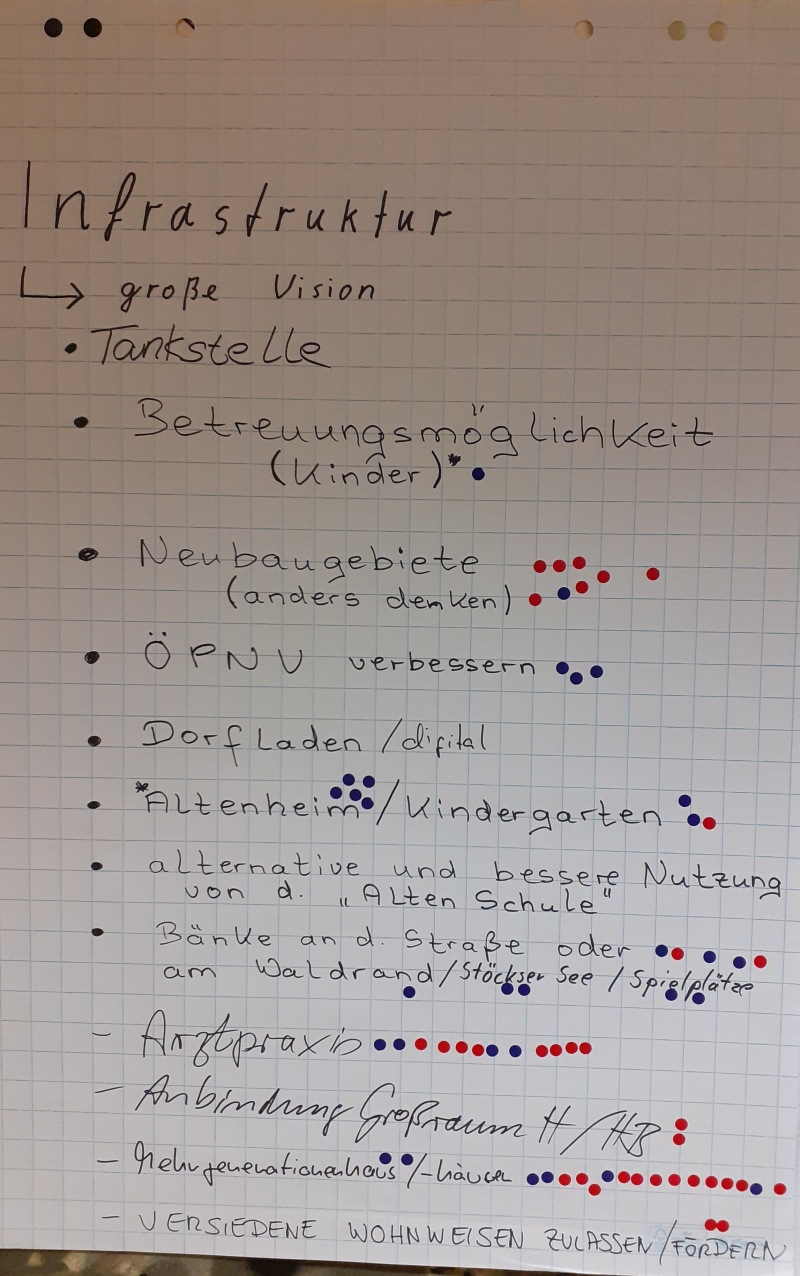 Infrastruktur
↳ große Vision
• Tankstelle
• Betreuungsmöglichkeit
(Kinder)*
• Neubaugebiete
(anders denken)
• ÖPNV verbessern
• Dorfladen/digital
• *Altenheim/Kindergarten
• alternative und bessere Nutzung
von d. „Alten Schule"
• Bänke an d. Straße oder
am Waldrand/Stöckser See/Spielplätze
- Arztpraxis
- Anbindung Großraum H/HB
- Mehrgenerationenhaus/-häuser
- VERSIEDENE WOHNWEISEN ZULASSEN/FÖRDERN